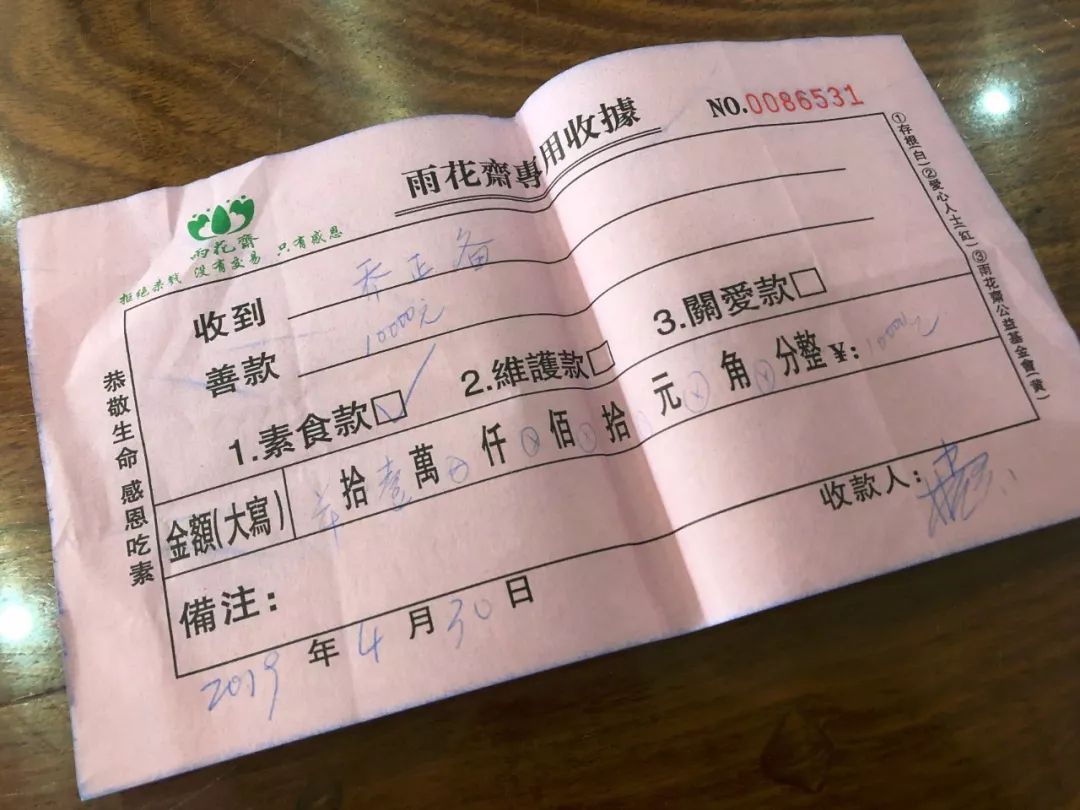 雨花齋專用收據
NO.0086531
雨花齋
拒絕杀戮 没有交易 只有感恩
收到 乔正备
善款 10000元
1.素食款☑ 2.維護款□ 3.關愛款□
金額(大寫) 拾壹萬 仟 佰 拾 元 角 分整 ¥:10000元
備注:
收款人:
2019年4月30日
恭敬生命 感恩吃素
①存根(白)②愛心人士(紅)③雨花齋公益基金會(黄)